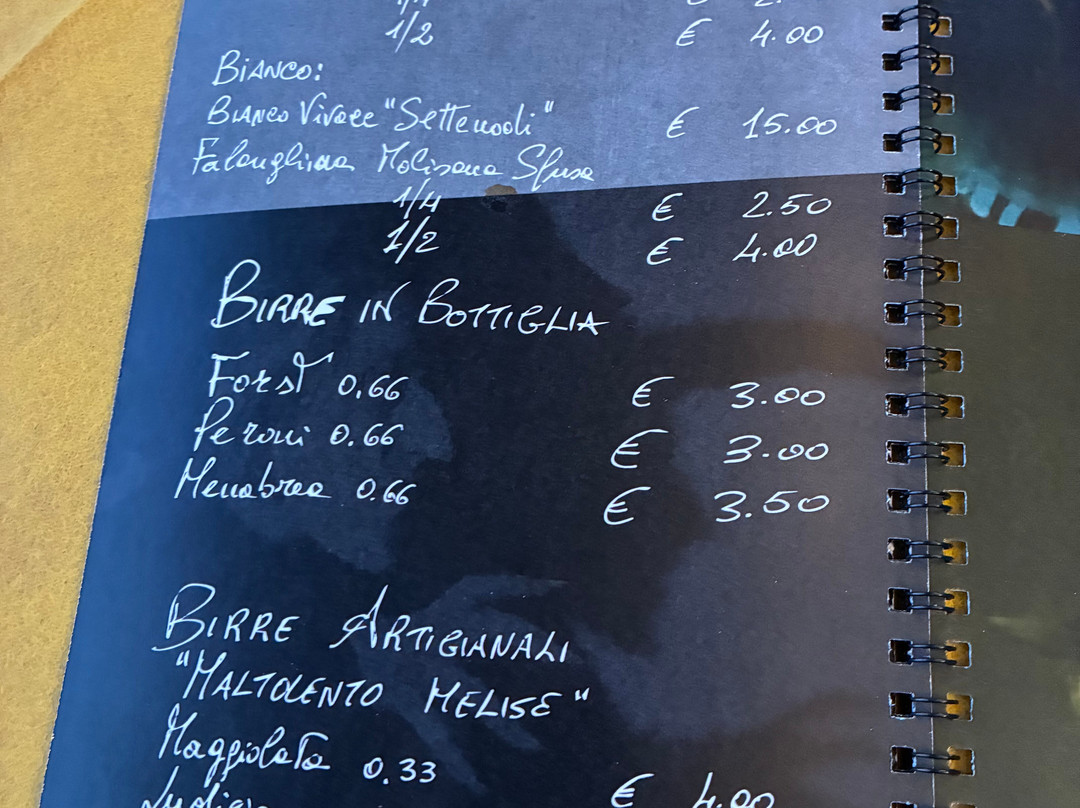 1/4 € 2.
1/2 € 4.00
BIANCO:
BIANCO Vivace "Settenodi" € 15.00
Falanghina Molisana Sfusa
1/4 € 2.50
1/2 € 4.00
BIRRE IN BOTTIGLIA
Forst 0.66 € 3.00
Peroni 0.66 € 3.00
Menabrea 0.66 € 3.50
BIRRE ARTIGIANALI
"MALTOLENTO MELISE"
Maggiolata 0.33 € 4.00